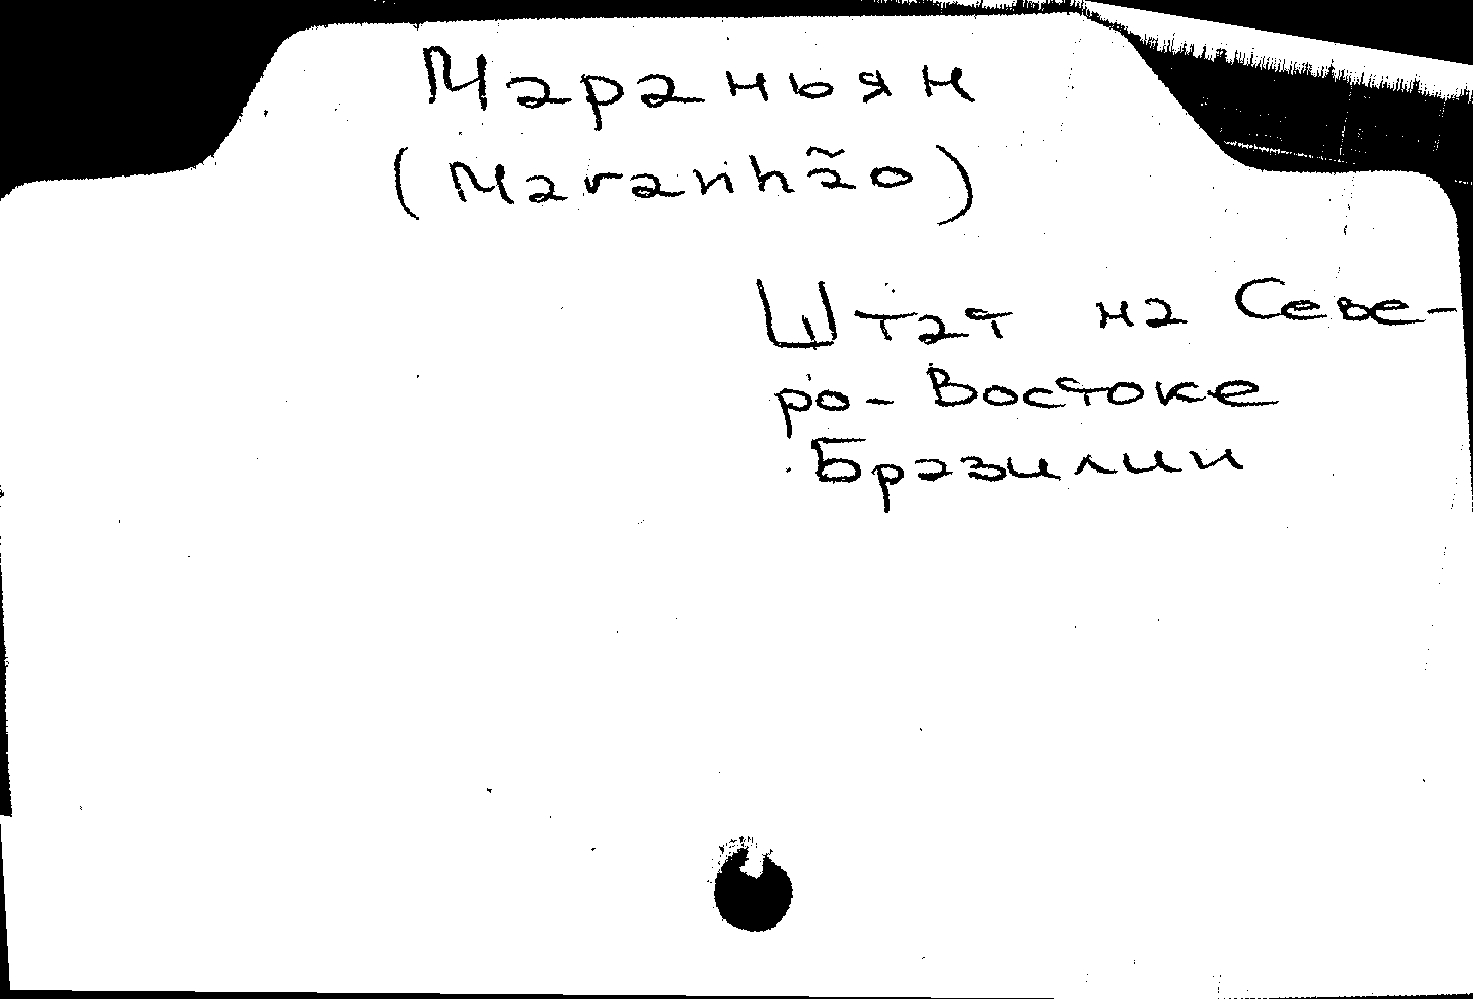 Мараньян
(Maranhão)
Штат на Севе-
ро-Востоке
Бразилии